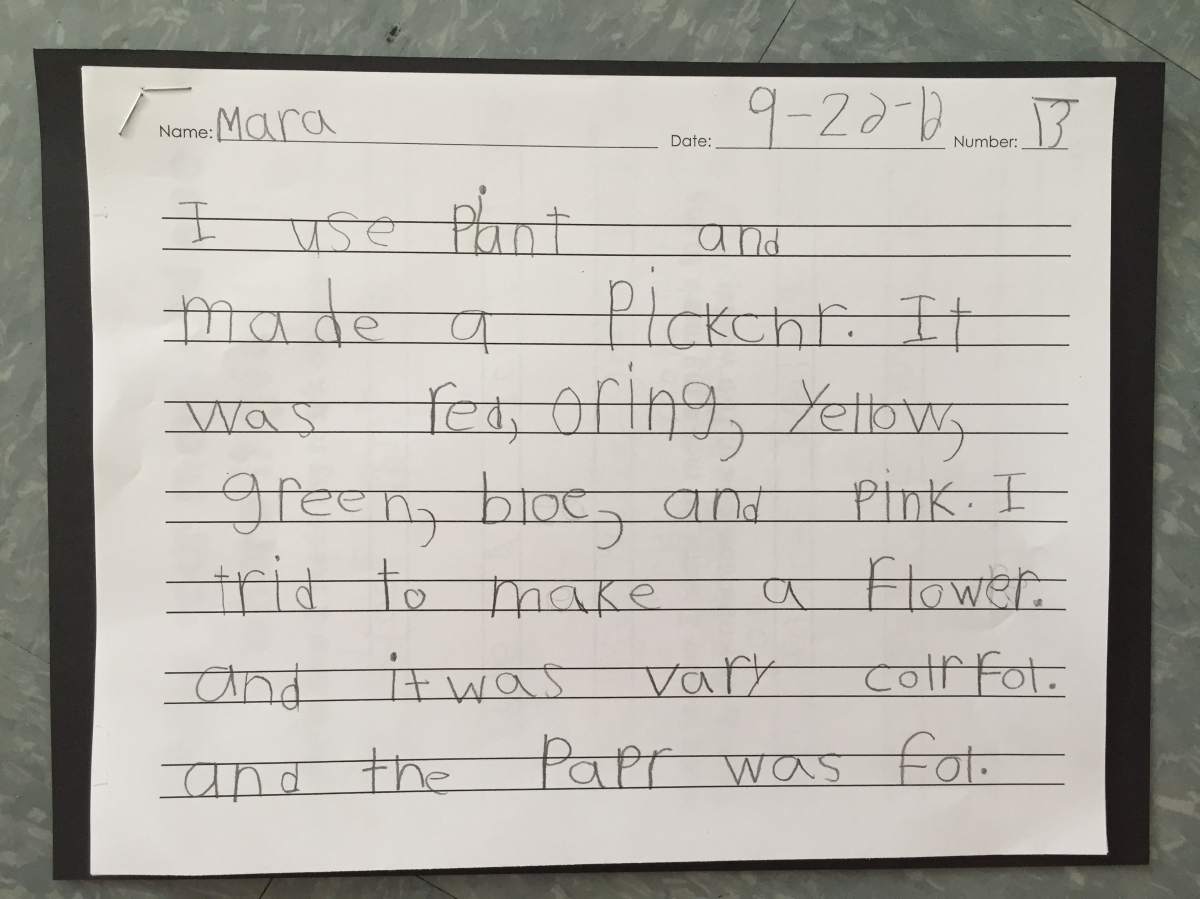 Name: Mara Date: 9-22-12 Number: 13
I use Piant and
made a Pickchr. It
was red, oring, Yellow,
green, bloe, and Pink. I
trid to make a Flower.
and it was vary colrFol.
and the PaPr was fol.